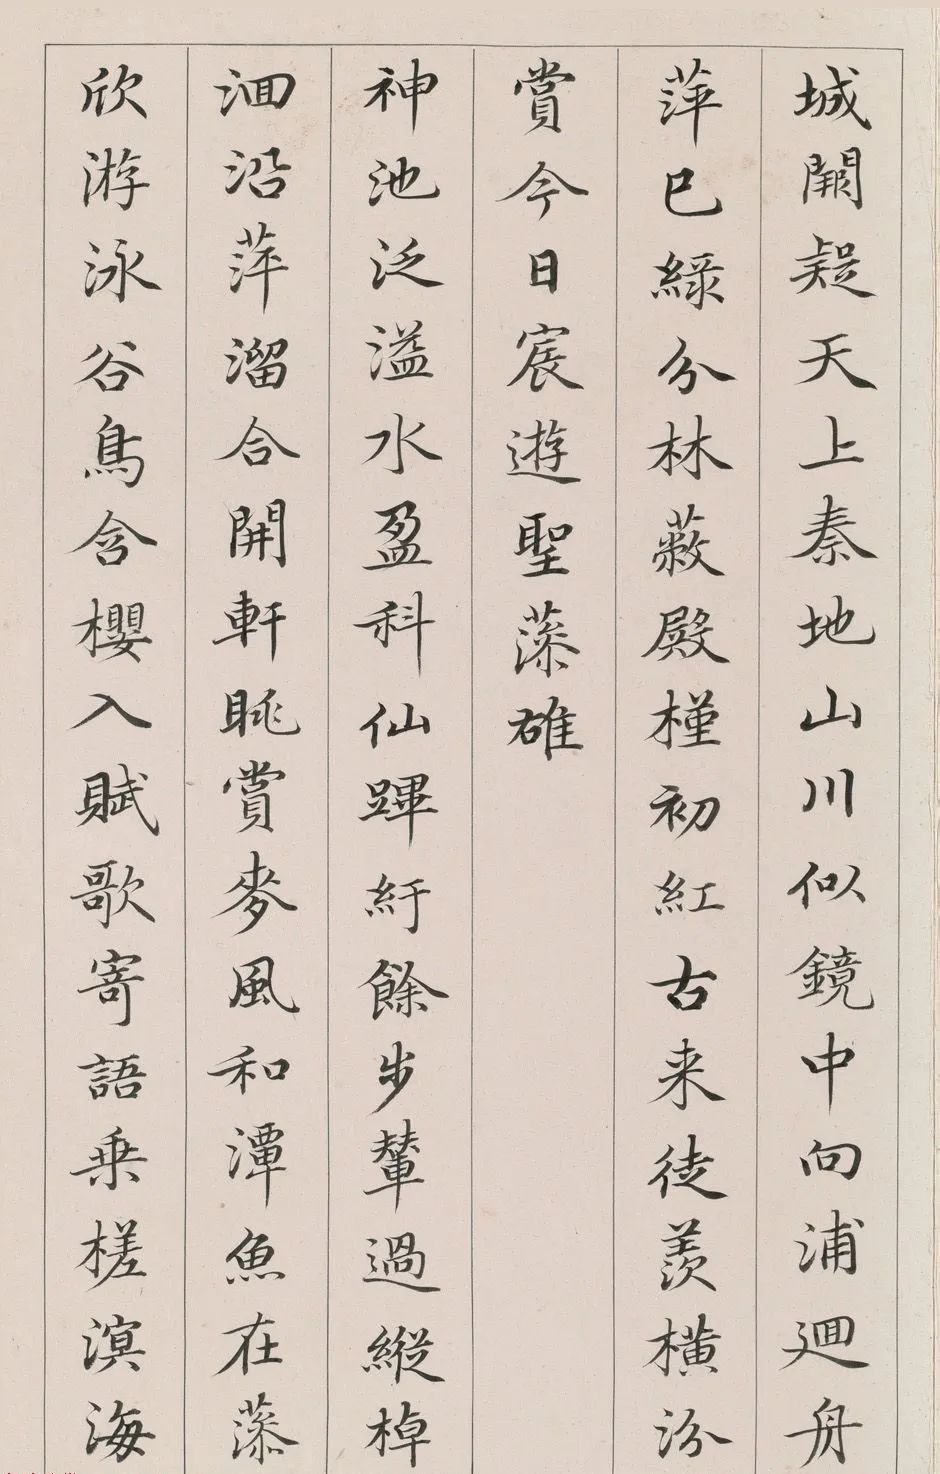 城闕疑天上秦地山川似鏡中向浦廻舟
萍已綠分林蔽殿槿初紅古来徒羨横汾
賞今日宸遊聖藻雄
神池泛溢水盈科仙蹕紆餘步輦過縱棹
洄沿萍溜合開軒眺賞麥風和潭魚在藻
欣游泳谷鳥含櫻入賦歌寄語乗槎溟海